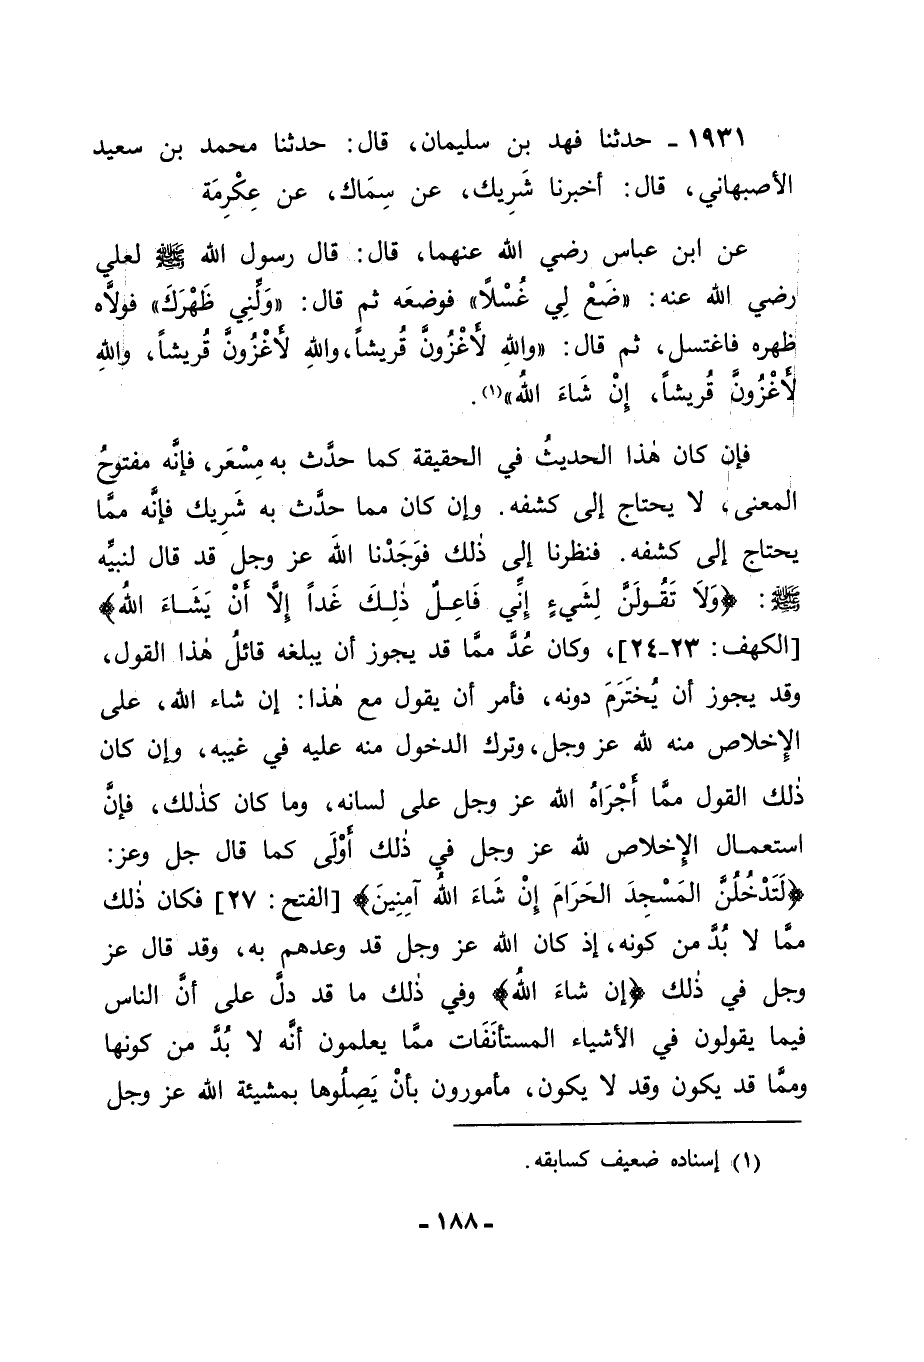 ١٩٣١ - حدثنا فهد بن سليمان، قال: حدثنا محمد بن سعيد
الأصبهاني، قال: أخبرنا شَرِيك، عن سِمَاك، عن عِكْرِمَة
عن ابن عباس رضي الله عنهما، قال: قال رسول الله ﷺ لعلي
رضي الله عنه: «ضَعْ لِي غُسْلًا» فوضعَه ثم قال: «وَلِّنِي ظَهْرَكَ» فولَّاه
ظهره فاغتسل، ثم قال: «واللهِ لأَغْزُونَّ قُريشاً، واللهِ لأَغْزُونَّ قُريشاً، واللهِ
لأَغْزُونَّ قُريشاً، إِنْ شَاءَ اللهُ»(١).
فإن كان هٰذا الحديثُ في الحقيقة كما حدَّث به مِسْعَر، فإنَّه مفتوحُ
المعنى، لا يحتاج إلى كشفه. وإن كان مما حدَّث به شَرِيك فإنَّه ممَّا
يحتاج إلى كشفه. فنظرنا إلى ذٰلك فوَجَدْنا اللهَ عز وجل قد قال لنبيِّه
ﷺ: ﴿وَلَا تَقُولَنَّ لِشَيءٍ إِنِّي فَاعِلٌ ذٰلِكَ غَداً إِلَّا أَنْ يَشَاءَ اللهُ﴾
[الكهف: ٢٣-٢٤]، وكان عُدَّ ممَّا قد يجوز أن يبلغه قائلُ هٰذا القول،
وقد يجوز أن يُخْتَرَمَ دونه، فأمر أن يقول مع هٰذا: إن شاء الله، على
الإِخلاص منه لله عز وجل، وترك الدخول منه عليه في غيبه، وإن كان
ذٰلك القول ممَّا أَجْرَاهُ الله عز وجل على لسانه، وما كان كذلك، فإنَّ
استعمال الإِخلاص لله عز وجل في ذٰلك أَوْلَى كما قال جل وعز:
﴿لَتَدْخُلُنَّ المَسْجِدَ الحَرَامَ إِنْ شَاءَ اللهُ آمِنِينَ﴾ [الفتح: ٢٧] فكان ذٰلك
ممَّا لا بُدَّ من كونه، إذ كان الله عز وجل قد وعدهم به، وقد قال عز
وجل في ذٰلك ﴿إن شاءَ اللهُ﴾ وفي ذٰلك ما قد دلَّ على أنَّ الناس
فيما يقولون في الأشياء المستأنَفَات ممَّا يعلمون أنَّه لا بُدَّ من كونها
وممَّا قد يكون وقد لا يكون، مأمورون بأنْ يَصِلُوها بمشيئة الله عز وجل
(١) إسناده ضعيف كسابقه.
- ١٨٨ -